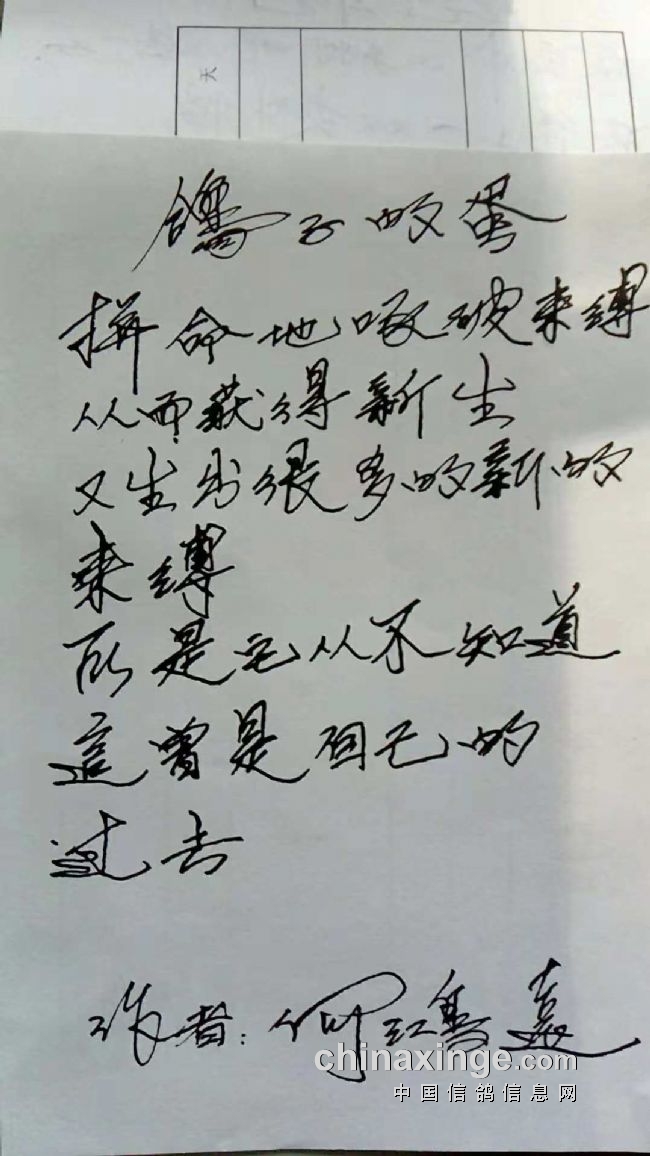 天
鴿子的蛋
拼命地啄破束缚
从而获得新生
又生出很多的新的
束缚
可是它从不知道
這曾是自己的
过去
作者:何
chinaxinge.com
中国信鸽信息网